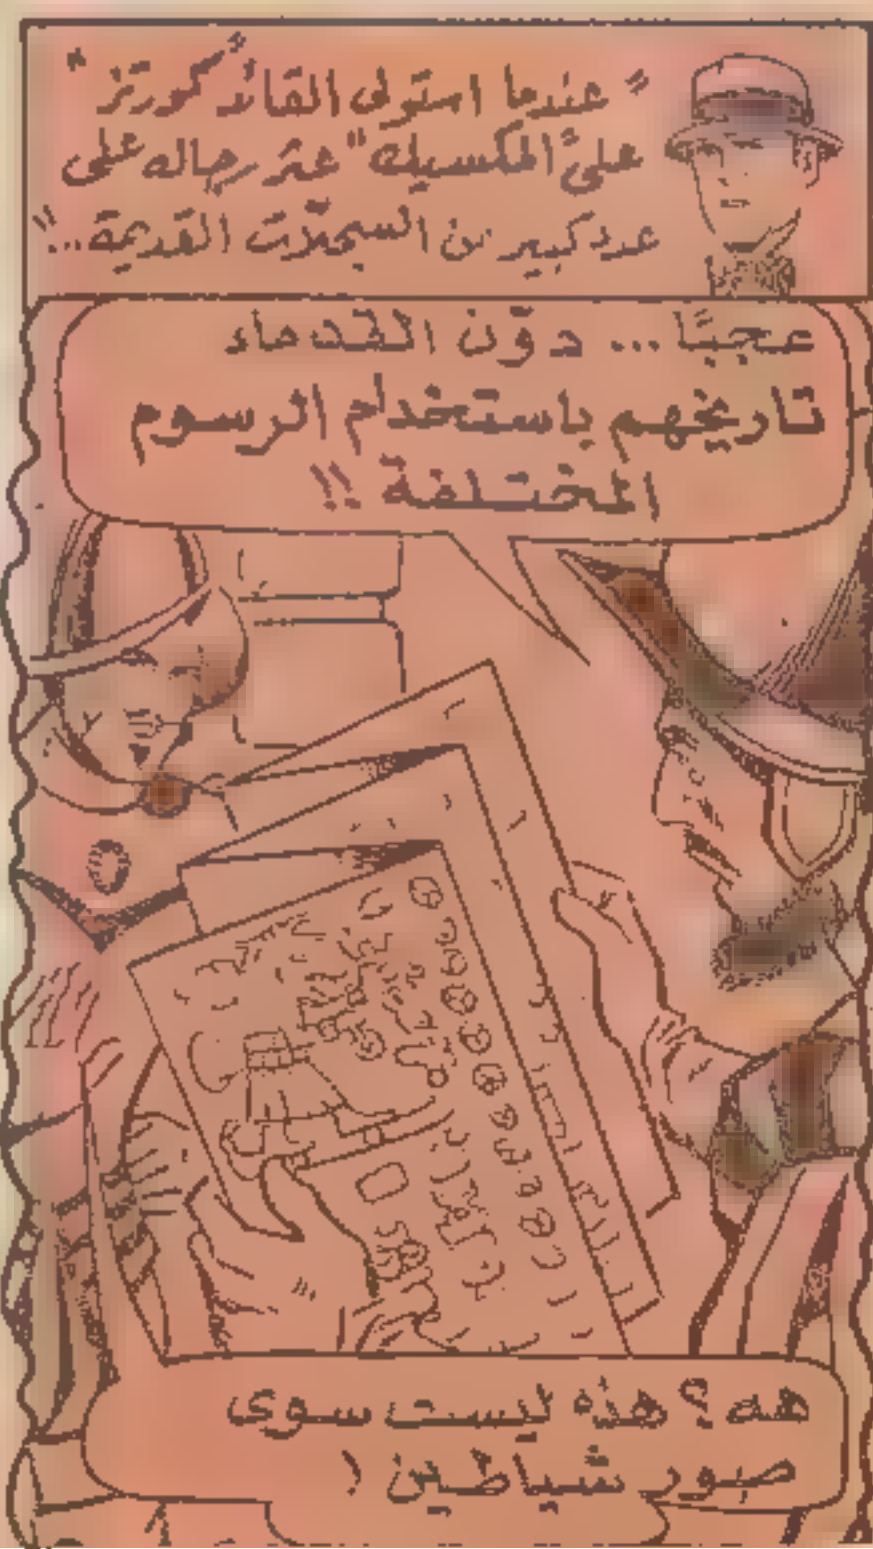 "عندما استولى القائد كورتز"
على "المكسيك" عثر رجاله على
عدد كبير من السجلات القديمة..."
عجبًا... دوّن القدماء
تاريخهم باستخدام الرسوم
المختلفة !!
هه؟ هذه ليست سوى
صور شياطين !